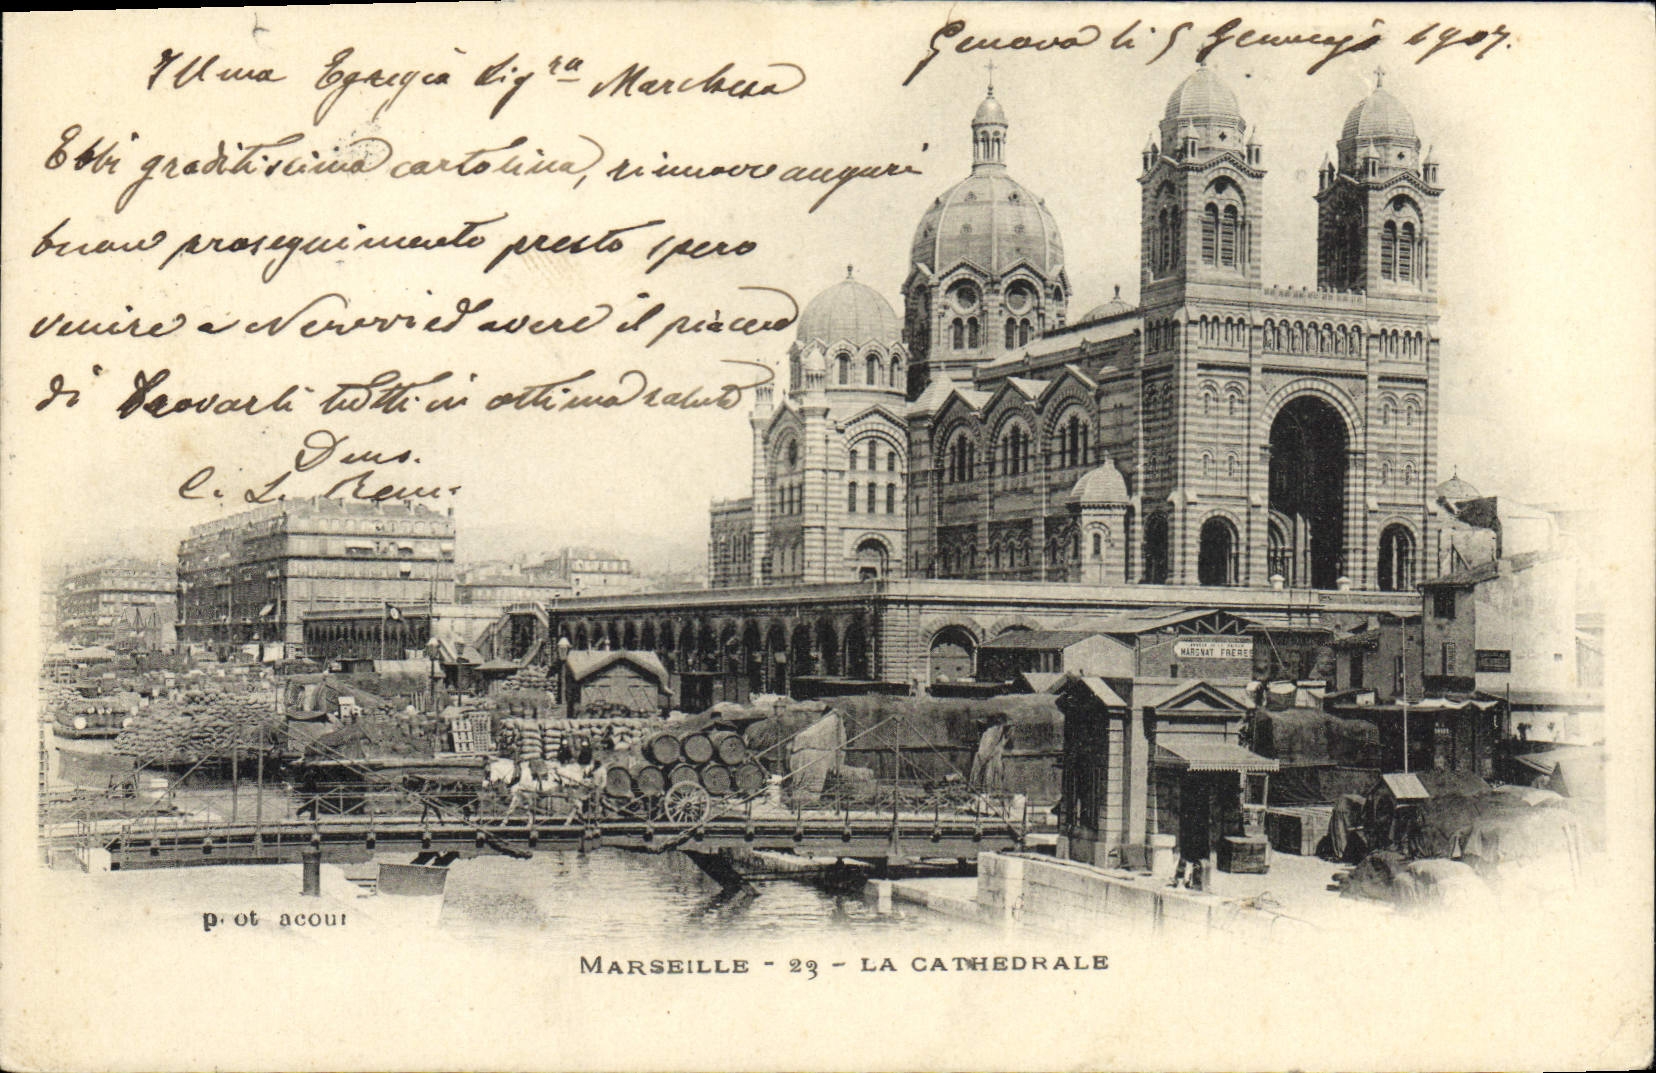 Genova li 5 Gennajo 1907.
Illma Egregia Sigra Marchesa
Ebbi graditissima cartolina, rinnovo auguri
buon proseguimento presto spero
venire a Nervi ed avere il piacere
di trovarli tutti in ottima salute
Devo.
C. L.
MARGNAT FRERES
p. ot acour
MARSEILLE - 23 - LA CATHEDRALE